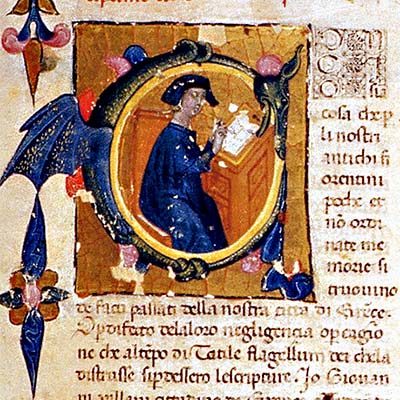 cosa che p
li nostri
antichi fi
orentini
poche et
nō ordi
nate me
morie si
truovino
de facti passati della nostra citta di Firēce.
O p difeto dela loro negligencia o p cagio
ne che al tēpo di Totile flagellum dei che la
distrusse si pdessero le scripture. Io Giovan
ni villani cittadino di